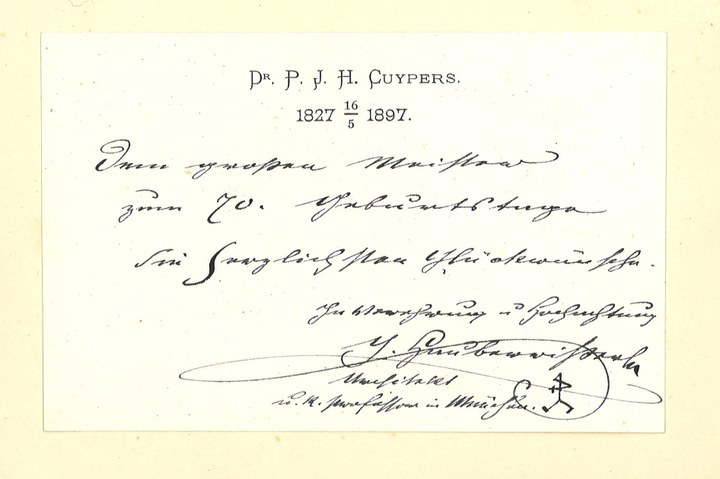 Dr. P. J. H. Cuypers.
1827 16/5 1897.
Dem großen Meister
zum 70. Geburtstage
die herzlichsten Glückwünsche.
In Verehrung u Hochachtung
G. Hauberrisser
Architekt
u. k. Professor in München.